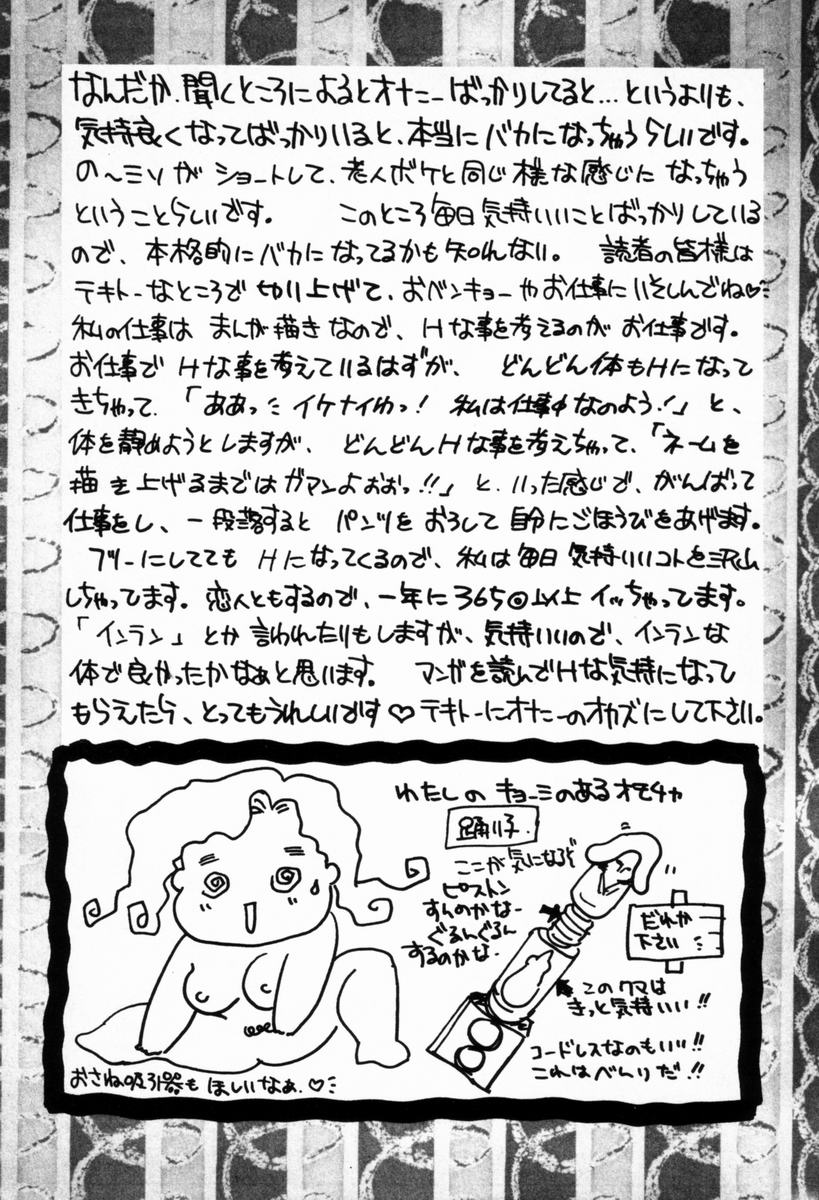 なんだか、聞くところによるとオナニーばっかりしてると…というよりも、
気持良くなってばっかりいると、本当にバカになっちゃうらしいです。
の〜ミソがショートして、老人ボケと同じ様な感じになっちゃう
ということらしいです。 このところ毎日気持いいことばっかりしている
ので、本格的にバカになってるかも知れない。 読者の皆様は
テキトーなところで切り上げて、おベンキョーやお仕事にいそしんでね♡
私の仕事はまんが描きなので、Hな事を考えるのがお仕事です。
お仕事でHな事を考えているはずが、 どんどん体もHになって
きちゃって、「ああっイケナイわっ! 私は仕事中なのよう!」と、
体を静めようとしますが、 どんどんHな事を考えちゃって、「ネームを
描き上げるまではガマンよおおっ!!」と、いった感じで、がんばって
仕事をし、一段落するとパンツをおろして自分にごほうびをあげます。
フツーにしててもHになってくるので、私は毎日気持いいコトを沢山
しちゃってます。恋人ともするので、一年に365回以上イッちゃってます。
「インラン」とか言われたりもしますが、気持いいので、インランな
体で良かったかなぁと思います。 マンガを読んでHな気持になって
もらえたら、とってもうれしいです♡テキトーにオナニーのオカズにして下さい。
わたしのキョーミのあるオモチャ
踊り子
ここが気になるぞ
ピストン
すんのかなー
ぐるんぐるん
するのかな-
だれか
下さい
このクマは
きっと気持いい!!
コードレスなのもいい!!
これはべんりだ!!
おさね吸引器もほしいなぁ.♡